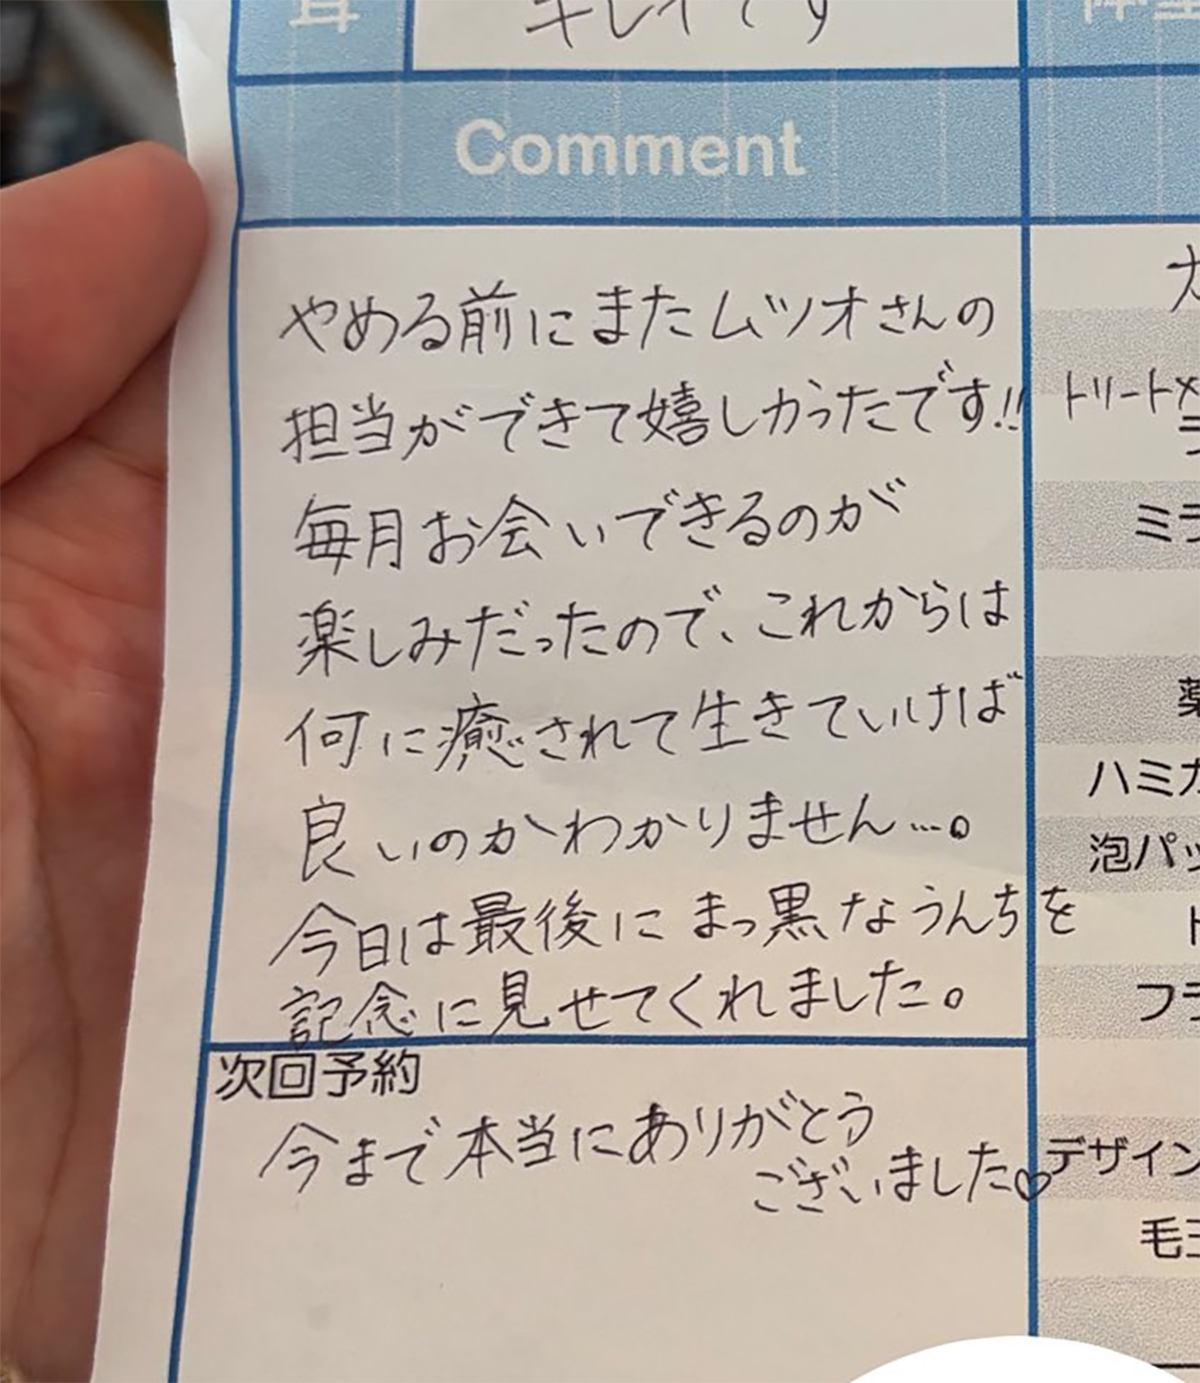 耳
キレイです
Comment
やめる前にまたムツオさんの
担当ができて嬉しかったです!!
毎月お会いできるのが
楽しみだったので、これからは
何に癒されて生きていけば
良いのかわかりません…。
今日は最後にまっ黒なうんちを
記念に見せてくれました。
次回予約
今まで本当にありがとう
ございました♡
トリートメ
ミラ
薬
ハミガ
泡パッ
ト
フラ
デザイン
毛玉